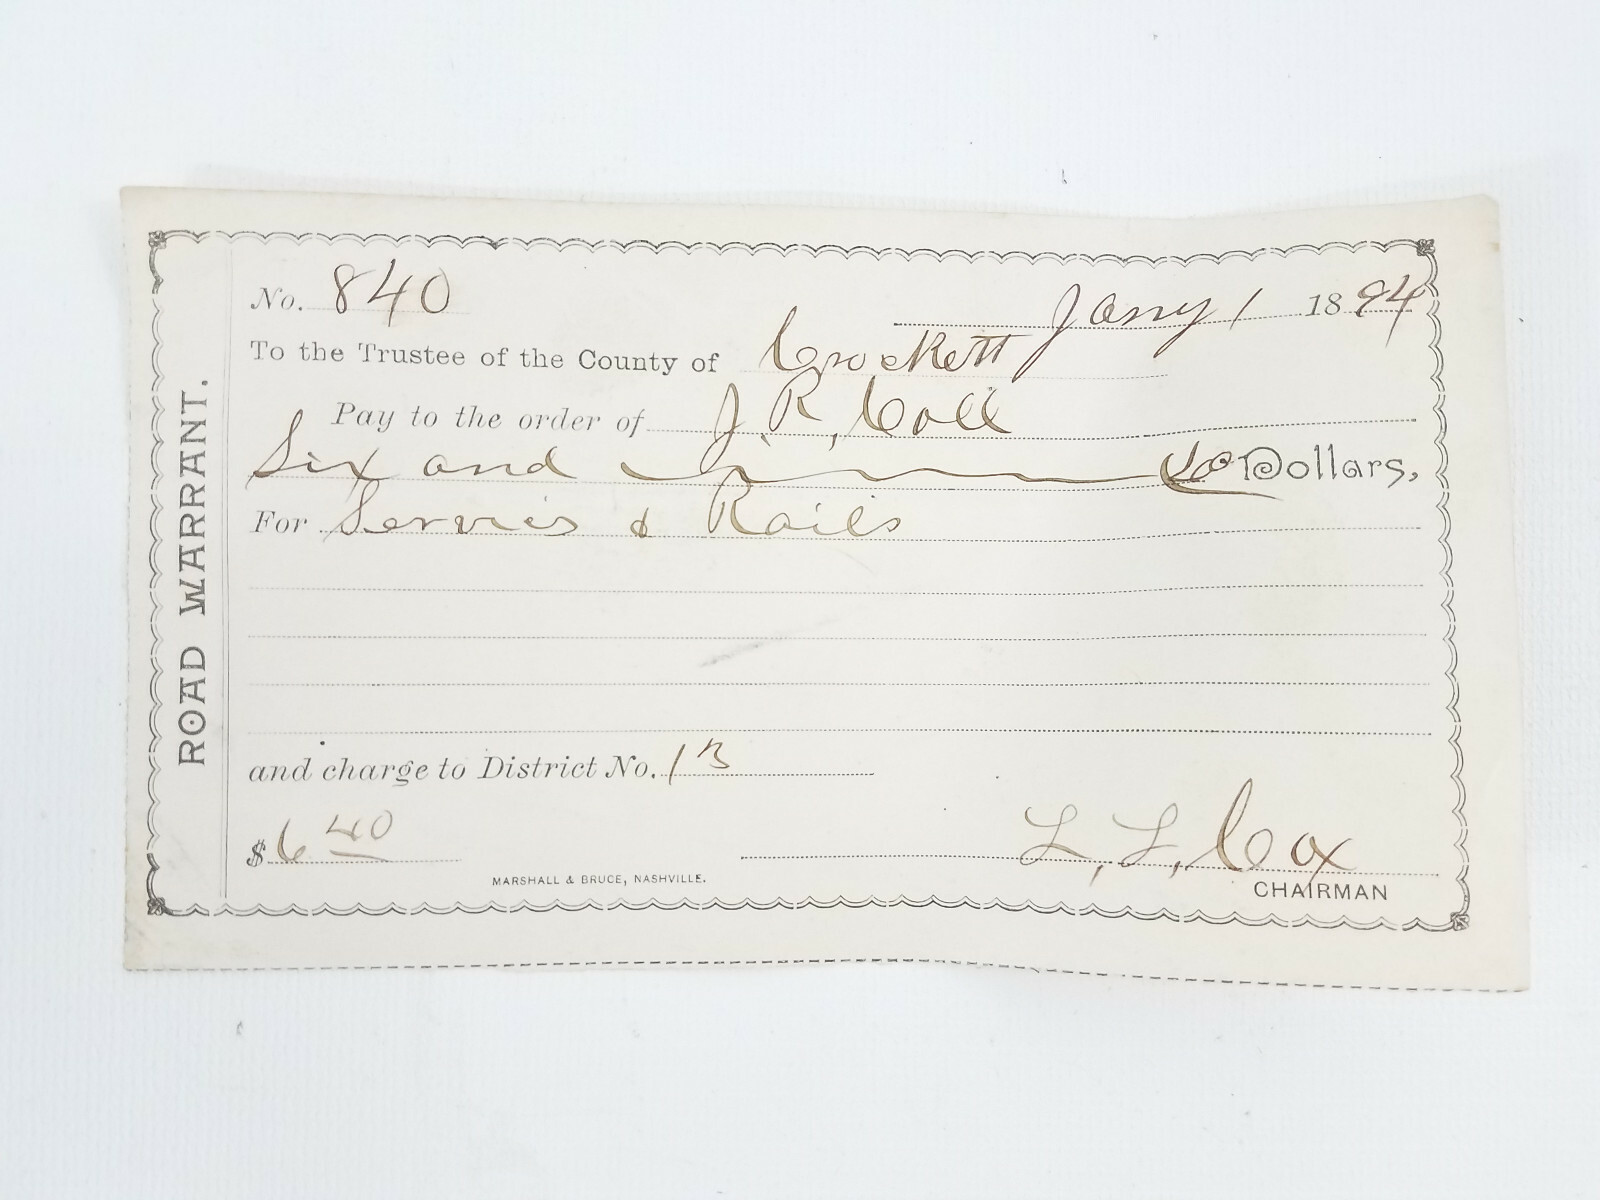 ROAD WARRANT.
No. 840
Jany 1 1894
To the Trustee of the County of Crockett
Pay to the order of J. R. Coll
Six and 40 Dollars,
For Servies & Rails
and charge to District No. 13
$6 40
L. L. Cox
CHAIRMAN
MARSHALL & BRUCE, NASHVILLE.